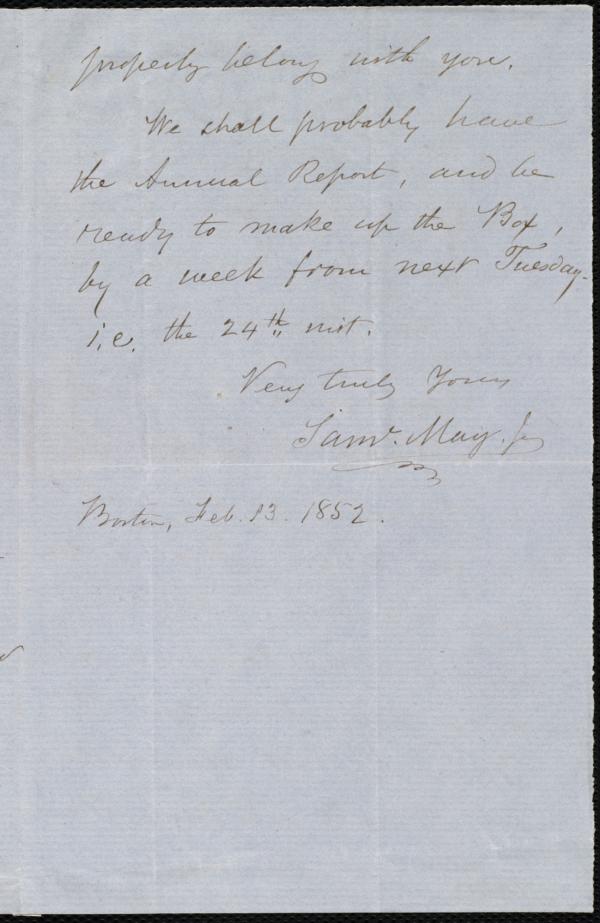 properly belong with you.
We shall probably have
the Annual Report, and be
ready to make up the Box,
by a week from next Tuesday-
i.e. the 24th inst.
Very truly Yours
Saml. May. Jr
Boston, Feb. 13. 1852.